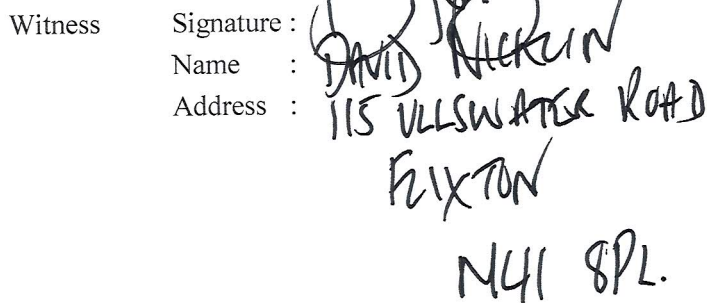 Witness Signature :
Name : DAVID NICKLIN
Address : 115 ULLSWATER ROAD
FLIXTON
M41 8PL.